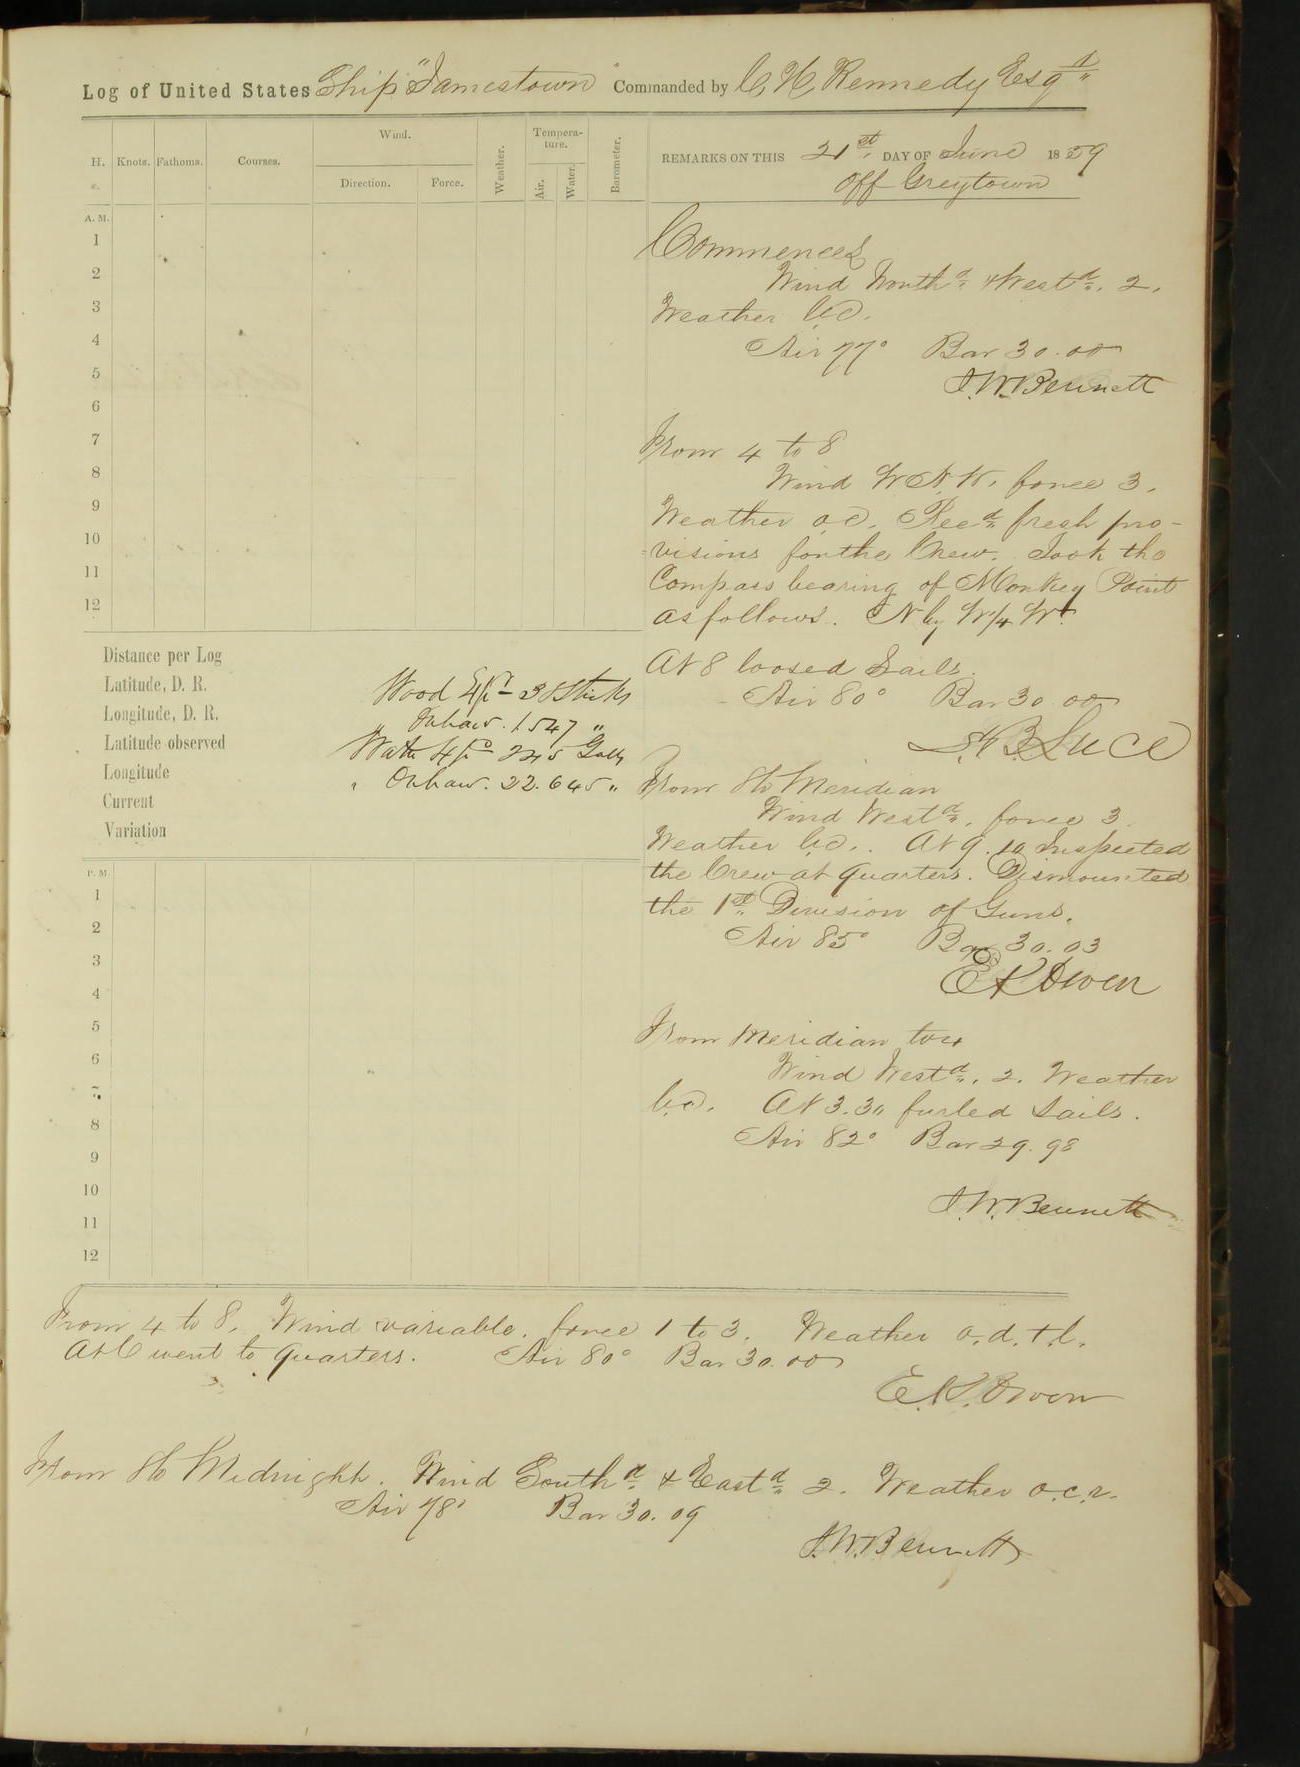 Log of United States Ship "Jamestown" Commanded by C H Kennedy Esqr
H. Knots. Fathoms. Courses. Wind. Direction. Force. Weather. Temperature. Air. Water. Barometer.
REMARKS ON THIS 21st DAY OF June 1859
Off Greytown
A. M.
1
2
3
4
5
6
7
8
9
10
11
12
Commences
Wind Northd & Westd. 2.
Weather b.c.
Air 77° Bar 30.00
J.W. Bennett
From 4 to 8
Wind W.N.W. force 3.
Weather o.c. Recd fresh pro-
visions for the Crew. Took the
Compass bearing of Monkey Point
as follows. N by W 1/4 W.
At 8 loosed Sails.
Air 80° Bar 30.00
S.B. Luce
Distance per Log
Latitude, D. R.
Longitude, D. R.
Latitude observed
Longitude
Current
Variation
Wood Expd 38 Sticks
" Onhand. 1547 "
Water Expd 225 Galls
" Onhand. 22.645 "
From 8 to Meridian
Wind Westd. force 3.
Weather b.c. At 9.10 Inspected
the Crew at quarters. Dismounted
the 1st Division of Guns.
Air 85° Bar 30.03
E K Owen
P. M.
1
2
3
4
5
6
7
8
9
10
11
12
From Meridian to 4
Wind Westd. 2. Weather
b.c. At 3.30 furled Sails.
Air 82° Bar 29.98
J.W. Bennett
From 4 to 8. Wind variable. force 1 to 3. Weather o.d.t.l.
At 6 went to quarters. Air 80° Bar 30.00
E.K. Owen
From 8 to Midnight. Wind Southd & Eastd 2. Weather o.c.r.
Air 78° Bar 30.09
J.W. Bennett